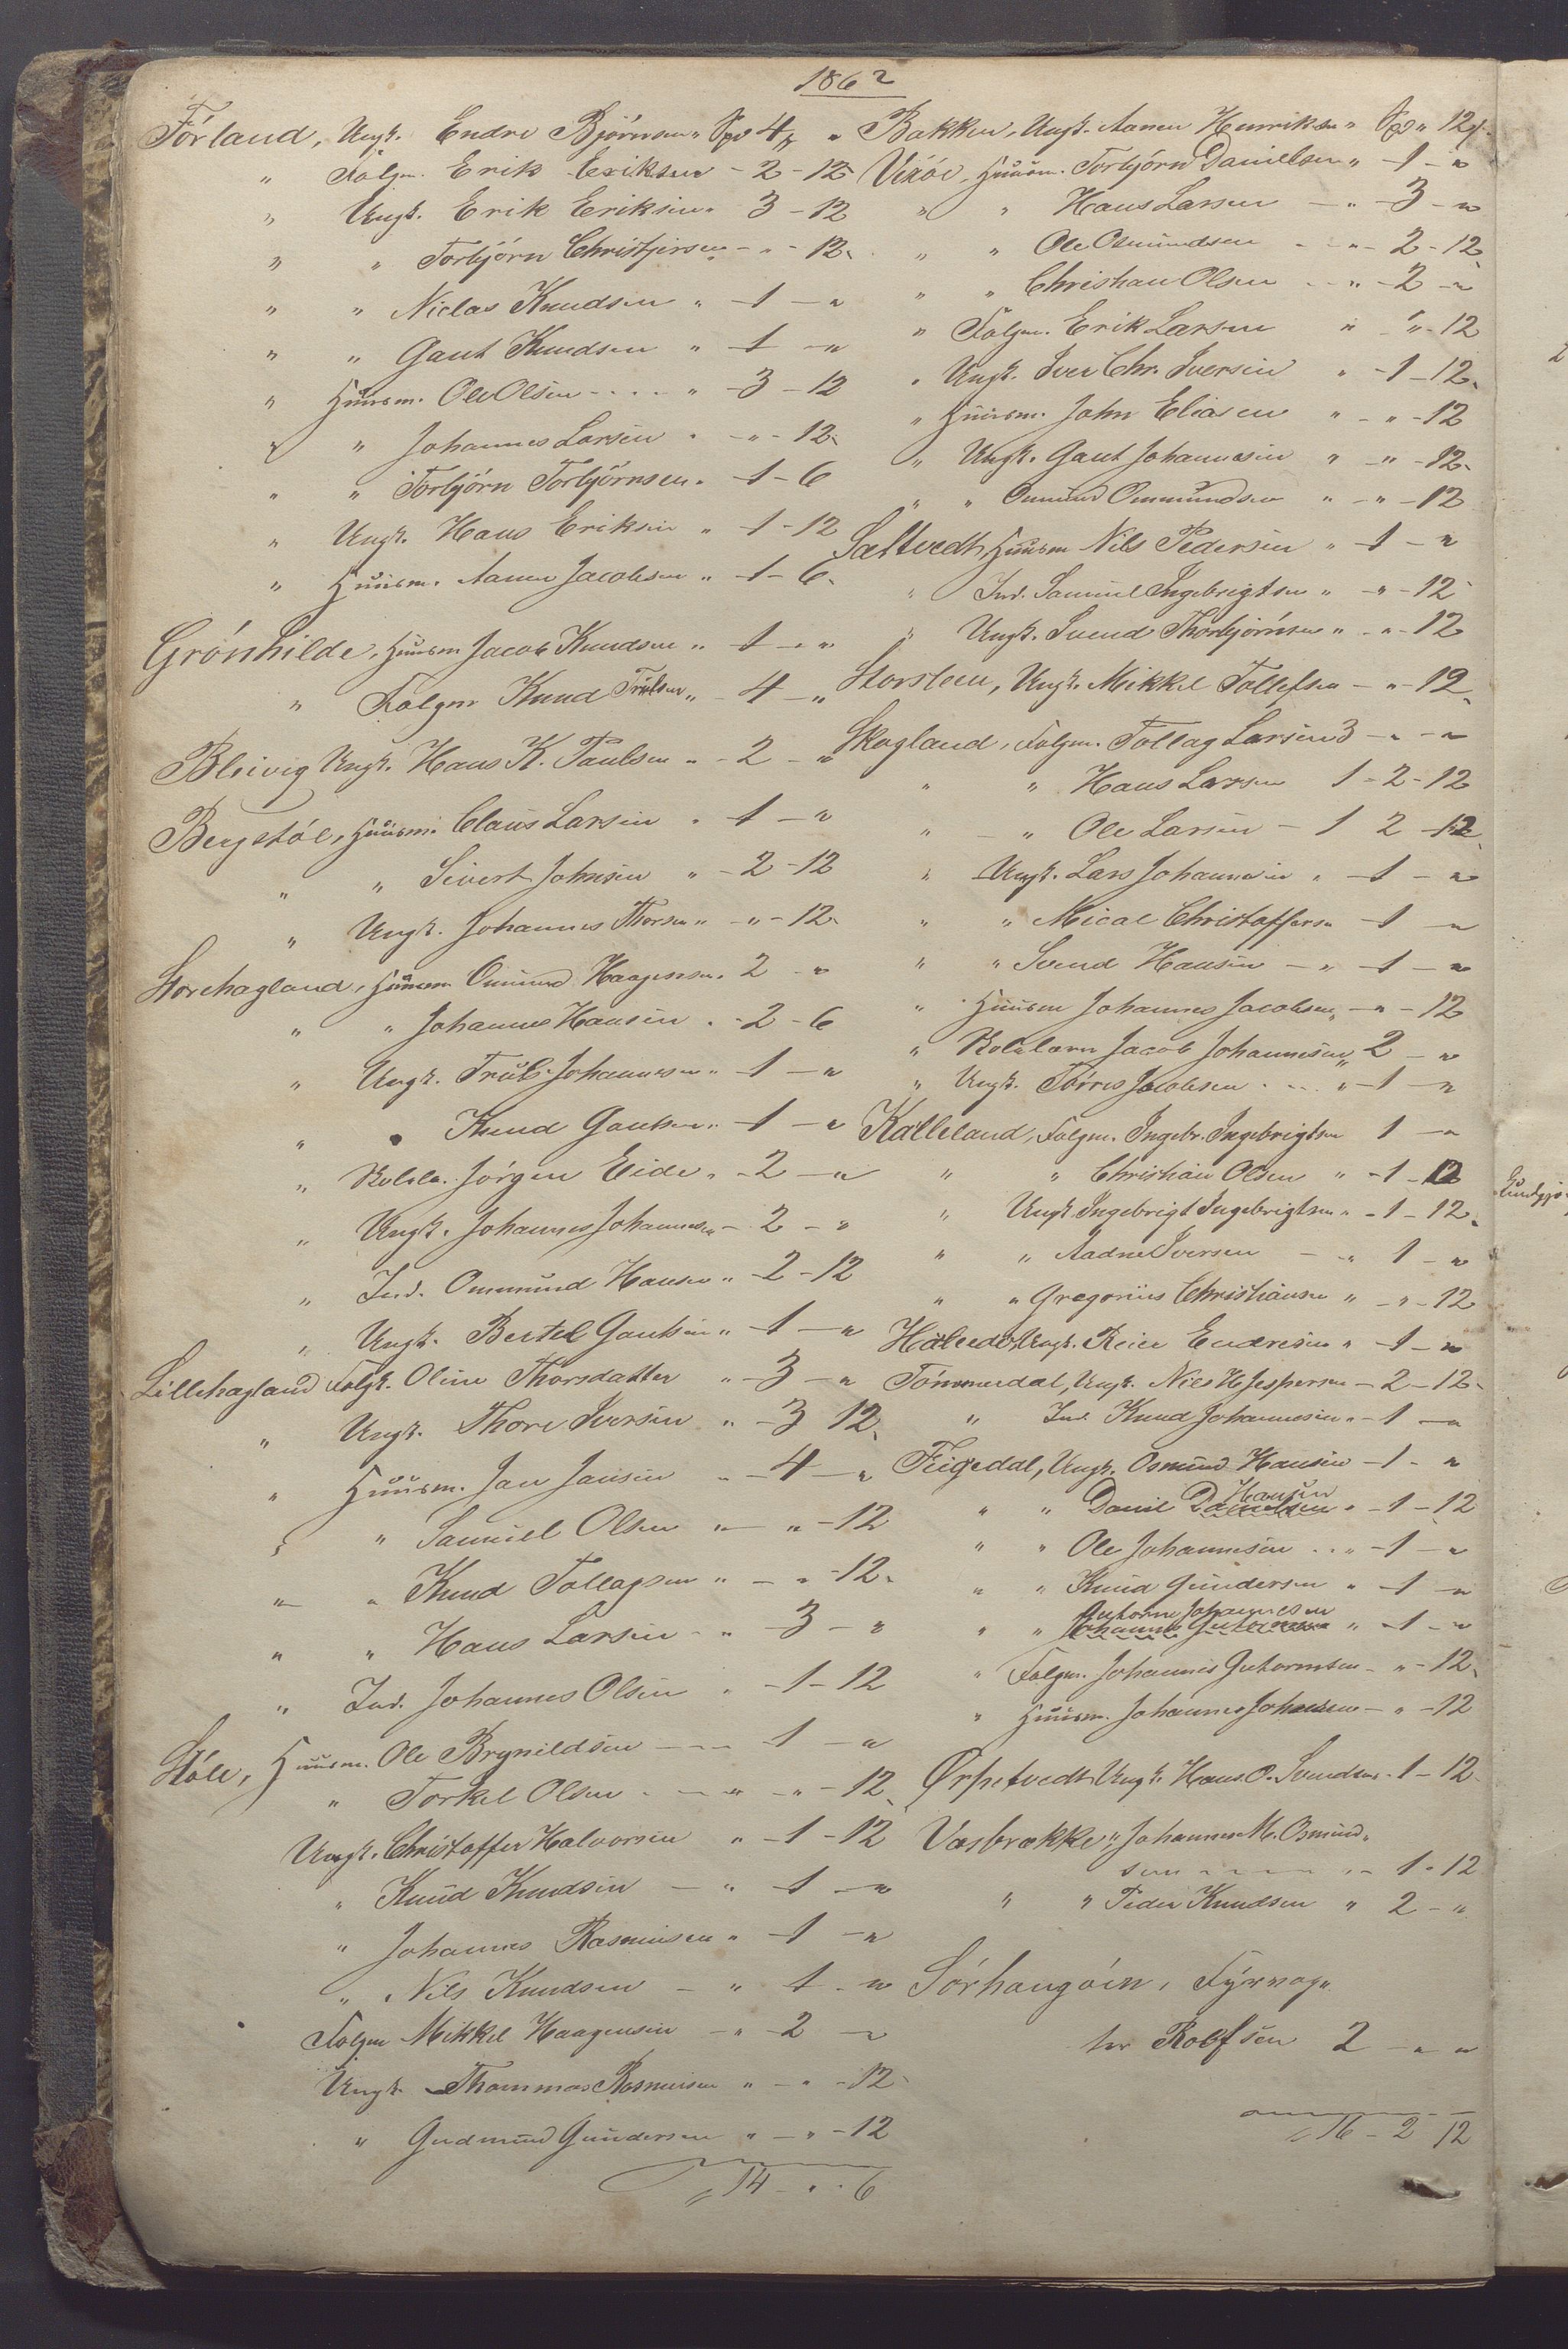 1862
Förland, Ungk. Endre Björnsen " Spd 4 ß "
" Folgm. Erik Eriksen - 2 - 12
" Ungk. Erik Eriksen " 3 - 12
" " Torbjörn Christjersen - " - 12
" " Niclas Knudsen " - 1 - "
" " Gaut Knudsen " - 1 - "
" Huusm. Ole Olsen - - - - " - 3 - 12
" " Johannes Larsen " - " - 12
" " Torbjörn Torbjörnsen " - 1 - 6
" Ungk. Hans Eriksen " - 1 - 12
" Huusm. Aanen Jacobsen " - 1 - 6
Grönhilde, Huusm Jacob Knudsen " - 1 - "
" Folgm Knud Trulsen " - 4 - "
Bleivig Ungk. Hans K. Paulsen " - 2 - "
Bergstöl, Huusm. Claus Larsen " 1 - "
" " Sivert Johnsen " - 2 - 12
" Ungk. Johannes Thorsen " - " - 12
Storehagland, Huusm Omund Haagensen " 2 - "
" " Johannes Hansen " - 2 - 6
" Ungk. Truls Johannesen " - 1 - "
" " Knud Gautsen " - 1 - "
" Skolelr. Jörgen Eide " - 2 - "
" Ungk. Johannes Johannesen - 2 - "
" Ind. Ommund Hansen " - 2 - 12
" Ungk. Bertel Gautsen " - 1 - "
Lillehagland Folgk. Oline Thorsdatter " - 3 - "
" Ungk. Thore Iversen " - 3 12
" Huusm. Jan Jansen " - 4 - "
" " Samuel Olsen " - " - 12
" " Knud Tollagsen " - " - 12
" " Hans Larsen - " - 3 - "
" Ind. Johannes Olsen " - 1 - 12
Stöle, Huusm. Ole Brynildsen - - 1 - "
" Torkel Olsen - - " - " - 12
Ungk. Christoffer Halvorsen " - 1 - 12
" Knud Knudsen - " - 1 - "
" Johannes Rasmusen " - 1 - "
" Nils Knudsen - " 1 - "
Folgm Mikkel Haagensen - " - 2 - "
Ungk. Thommas Rasmusen " - " - 12
" Gudmund Gundersen " - " - 12
14 - " - 6
Bakken, Ungk. Aanen Henriksen " Spd " 12 ß
Vixöe, Huusm. Torbjörn Danielsen " - 1 - "
" " Hans Larsen - " - 3 - "
" " Ole Osmundsen - " - 2 - 12
" " Christian Olsen - " - 2 - "
" Folgm. Erik Larsen " - " - 12
" Ungk. Iver Chr. Iversen " - 1 - 12
" Huusm. John Eliasen " - " - 12
" Ungk. Gaut Johannesen " - " - 12
" " Ommund Ommundsen " - " - 12
Sæltvedt, Huusm Nils Pedersen " - 1 - "
" Ind. Samuel Ingebrigtsen " - " - 12
" Ungk. Svend Thorbjörnsen " - " - 12
Storsteen, Ungk. Mikkel Tollefsen - " - 12
Skogland, Folgm. Tollag Larsen 3 - " - "
" " Hans Larsen 1 - 2 - 12
" - " Ole Larsen - 1 2 - 12
" Ungk. Lars Johannesen " - 1 - "
" " Mical Christoffersen - 1 - "
" " Svend Hansen - " - 1 - "
" Huusm Johannes Jacobsen " - " - 12
" Jacob Johannesen " 2 - "
" Ungk. Törres Jacobsen - - " - 1 - "
Kalleland, Folgm. Ingebr. Ingebrigtsen 1 - "
" " Christian Olsen " - 1 - 12
" Ungk Ingebrigt Ingebrigtsen " - 1 - 12
" " Aadne Iversen - " 1 - "
" " Gregorius Christiansen " - " - 12
Ungk. Reier Endresen " - 1 - "
Tömmerdal, Ungk. Niels H. Jespersen - 2 - 12
" Ind. Knud Johannesen " - 1 - "
Feigedal, Ungk. Osmund Hansen - 1 - "
Hansen
" " Daniel Danielsen " - 1 - 12
" " Ole Johannesen - - " - 1 - "
" " Knud Gundersen " - 1 - "
Gutorm Johannesen
" " Johannes Gutormsen " - 1 - "
" Folgm. Johannes Gutormsen - " - 12
" Huusm. Johannes Johansen - " - 12
Ørpetvedt Ungk. Hans O. Svendsen " 1 - 12
Vasbrække " Johannes M. Osmund-
sen - - - - " - 1 - 12
" " Peder Knudsen " 2 - "
Sörhaugöin, Fyrvog-
ter Rolfsen 2 - " - "
16 - 2 12